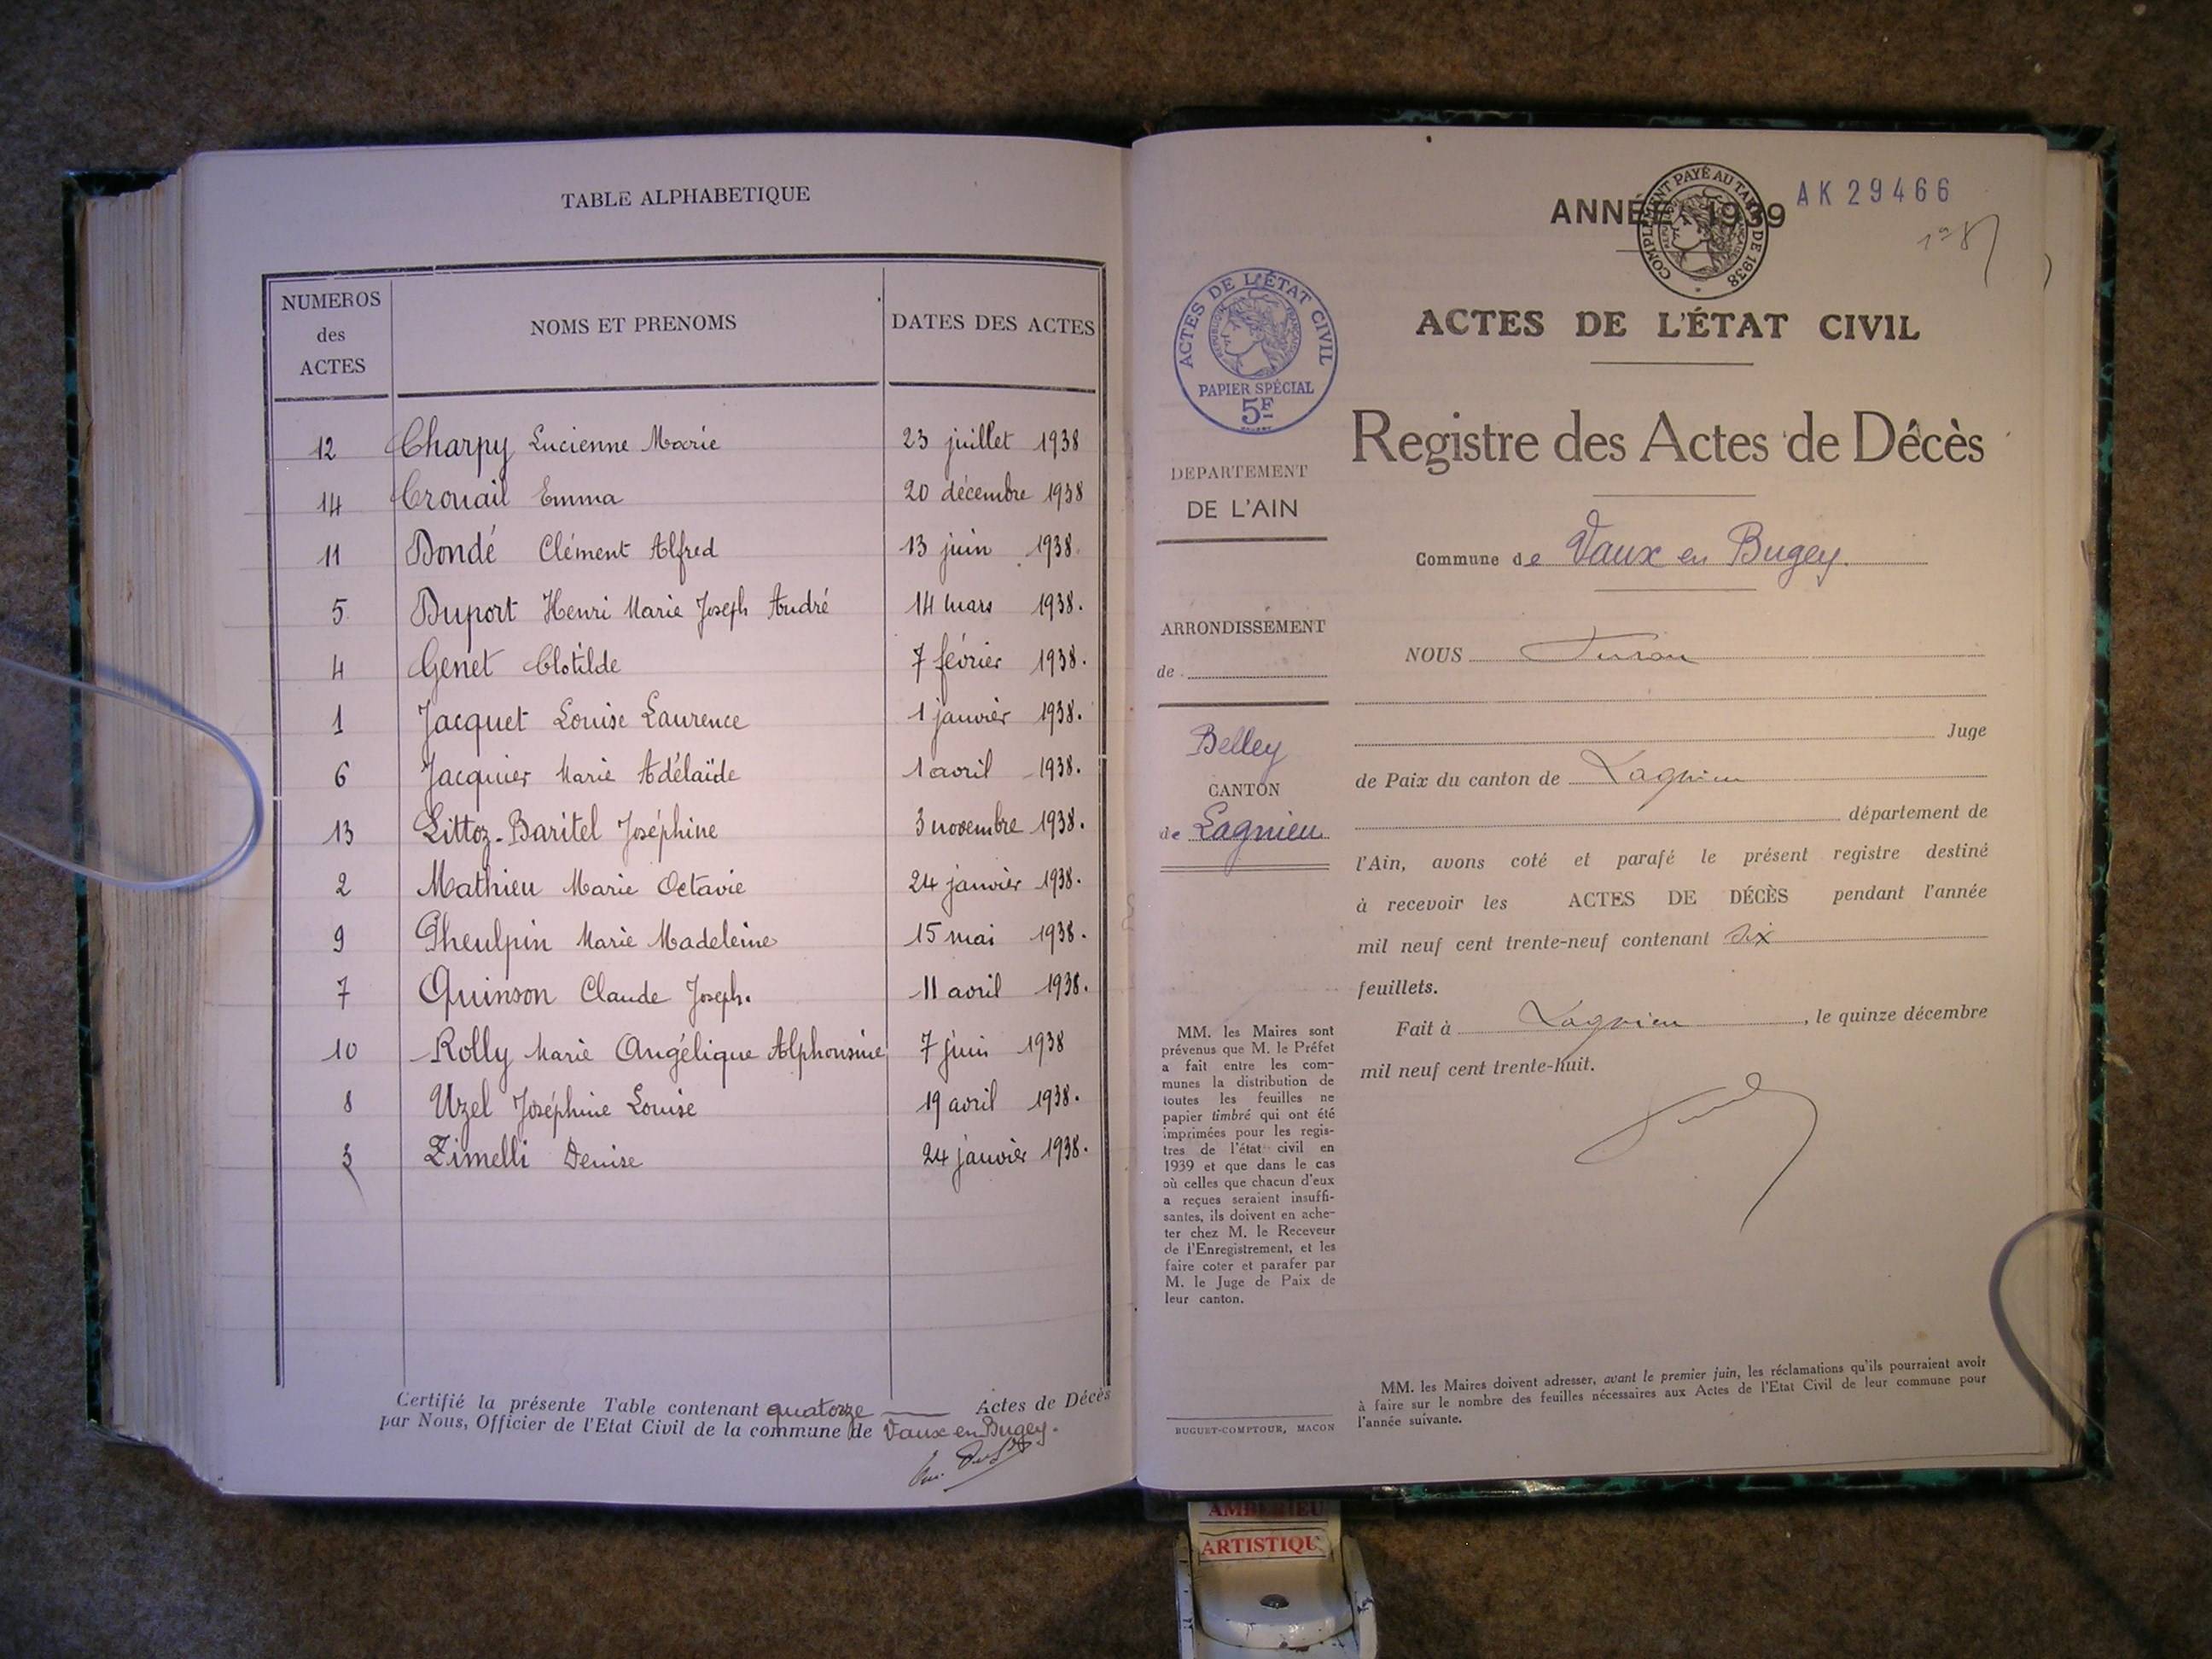 TABLE ALPHABETIQUE
NUMEROS des ACTES NOMS ET PRENOMS DATES DES ACTES
12 Charpy Lucienne Marie 23 juillet 1938
14 Crouail Emma 20 décembre 1938
11 Dondé Clément Alfred 13 juin 1938.
5 Duport Henri Marie Joseph André 14 mars 1938.
4 Genet Clotilde 7 février 1938.
1 Jacquet Louise Laurence 1 janvier 1938.
6 Jacquier Marie Adélaïde 1 avril 1938.
13 Littoz-Baritel Joséphine 3 novembre 1938.
2 Mathieu Marie Octavie 24 janvier 1938.
9 Pheulpin Marie Madeleine 15 mai 1938.
7 Quinson Claude Joseph. 11 avril 1938.
10 Rolly Marie Angélique Alphonsine 7 juin 1938
8 Uzel Joséphine Louise 19 avril 1938.
3 Zimelli Denise 24 janvier 1938.
Certifié la présente Table contenant quatorze Actes de Décès
par Nous, Officier de l'Etat Civil de la commune de Vaux en Bugey.
ANNÉE 1939
AK 29466
COMPLEMENT PAYÉ AU TARIF DE 1938
ACTES DE L'ÉTAT CIVIL
REPUBLIQUE FRANÇAISE
PAPIER SPÉCIAL
5F
DEPARTEMENT
DE L'AIN
ARRONDISSEMENT
de
Belley
CANTON
de Lagnieu
MM. les Maires sont
prévenus que M. le Préfet
a fait entre les com-
munes la distribution de
toutes les feuilles ne
papier timbré qui ont été
imprimées pour les regis-
tres de l'état civil en
1939 et que dans le cas
où celles que chacun d'eux
a reçues seraient insuffi-
santes, ils doivent en ache-
ter chez M. le Receveur
de l'Enregistrement, et les
faire coter et parafer par
M. le Juge de Paix de
leur canton.
BUGUET-COMPTOUR, MACON
ACTES DE L'ÉTAT CIVIL
Registre des Actes de Décès
Commune de Vaux en Bugey.
NOUS
Juge
de Paix du canton de Lagnieu
département de
l'Ain, avons coté et parafé le présent registre destiné
à recevoir les ACTES DE DÉCÈS pendant l'année
mil neuf cent trente-neuf contenant dix
feuillets.
Fait à Lagnieu, le quinze décembre
mil neuf cent trente-huit.
MM. les Maires doivent adresser, avant le premier juin, les réclamations qu'ils pourraient avoir
à faire sur le nombre des feuilles nécessaires aux Actes de l'Etat Civil de leur commune pour
l'année suivante.
AMBERIEU
ARTISTIQU